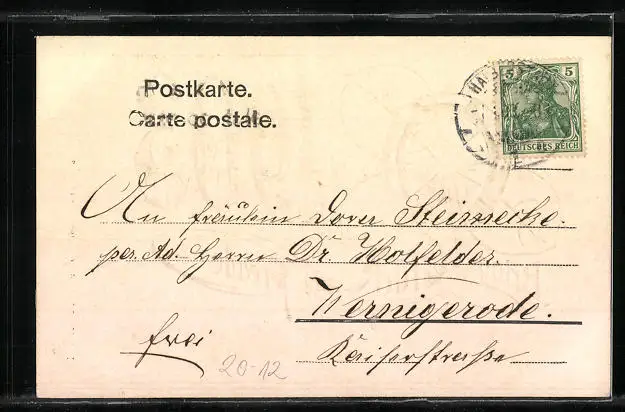 Postkarte.
Carte postale.
5 5
DEUTSCHES REICH
An Fräulein Dora Steinecke.
per. Ad. Herrn Dr. Wolfelder.
Wernigerode.
frei
Kaiserstraße
20-12